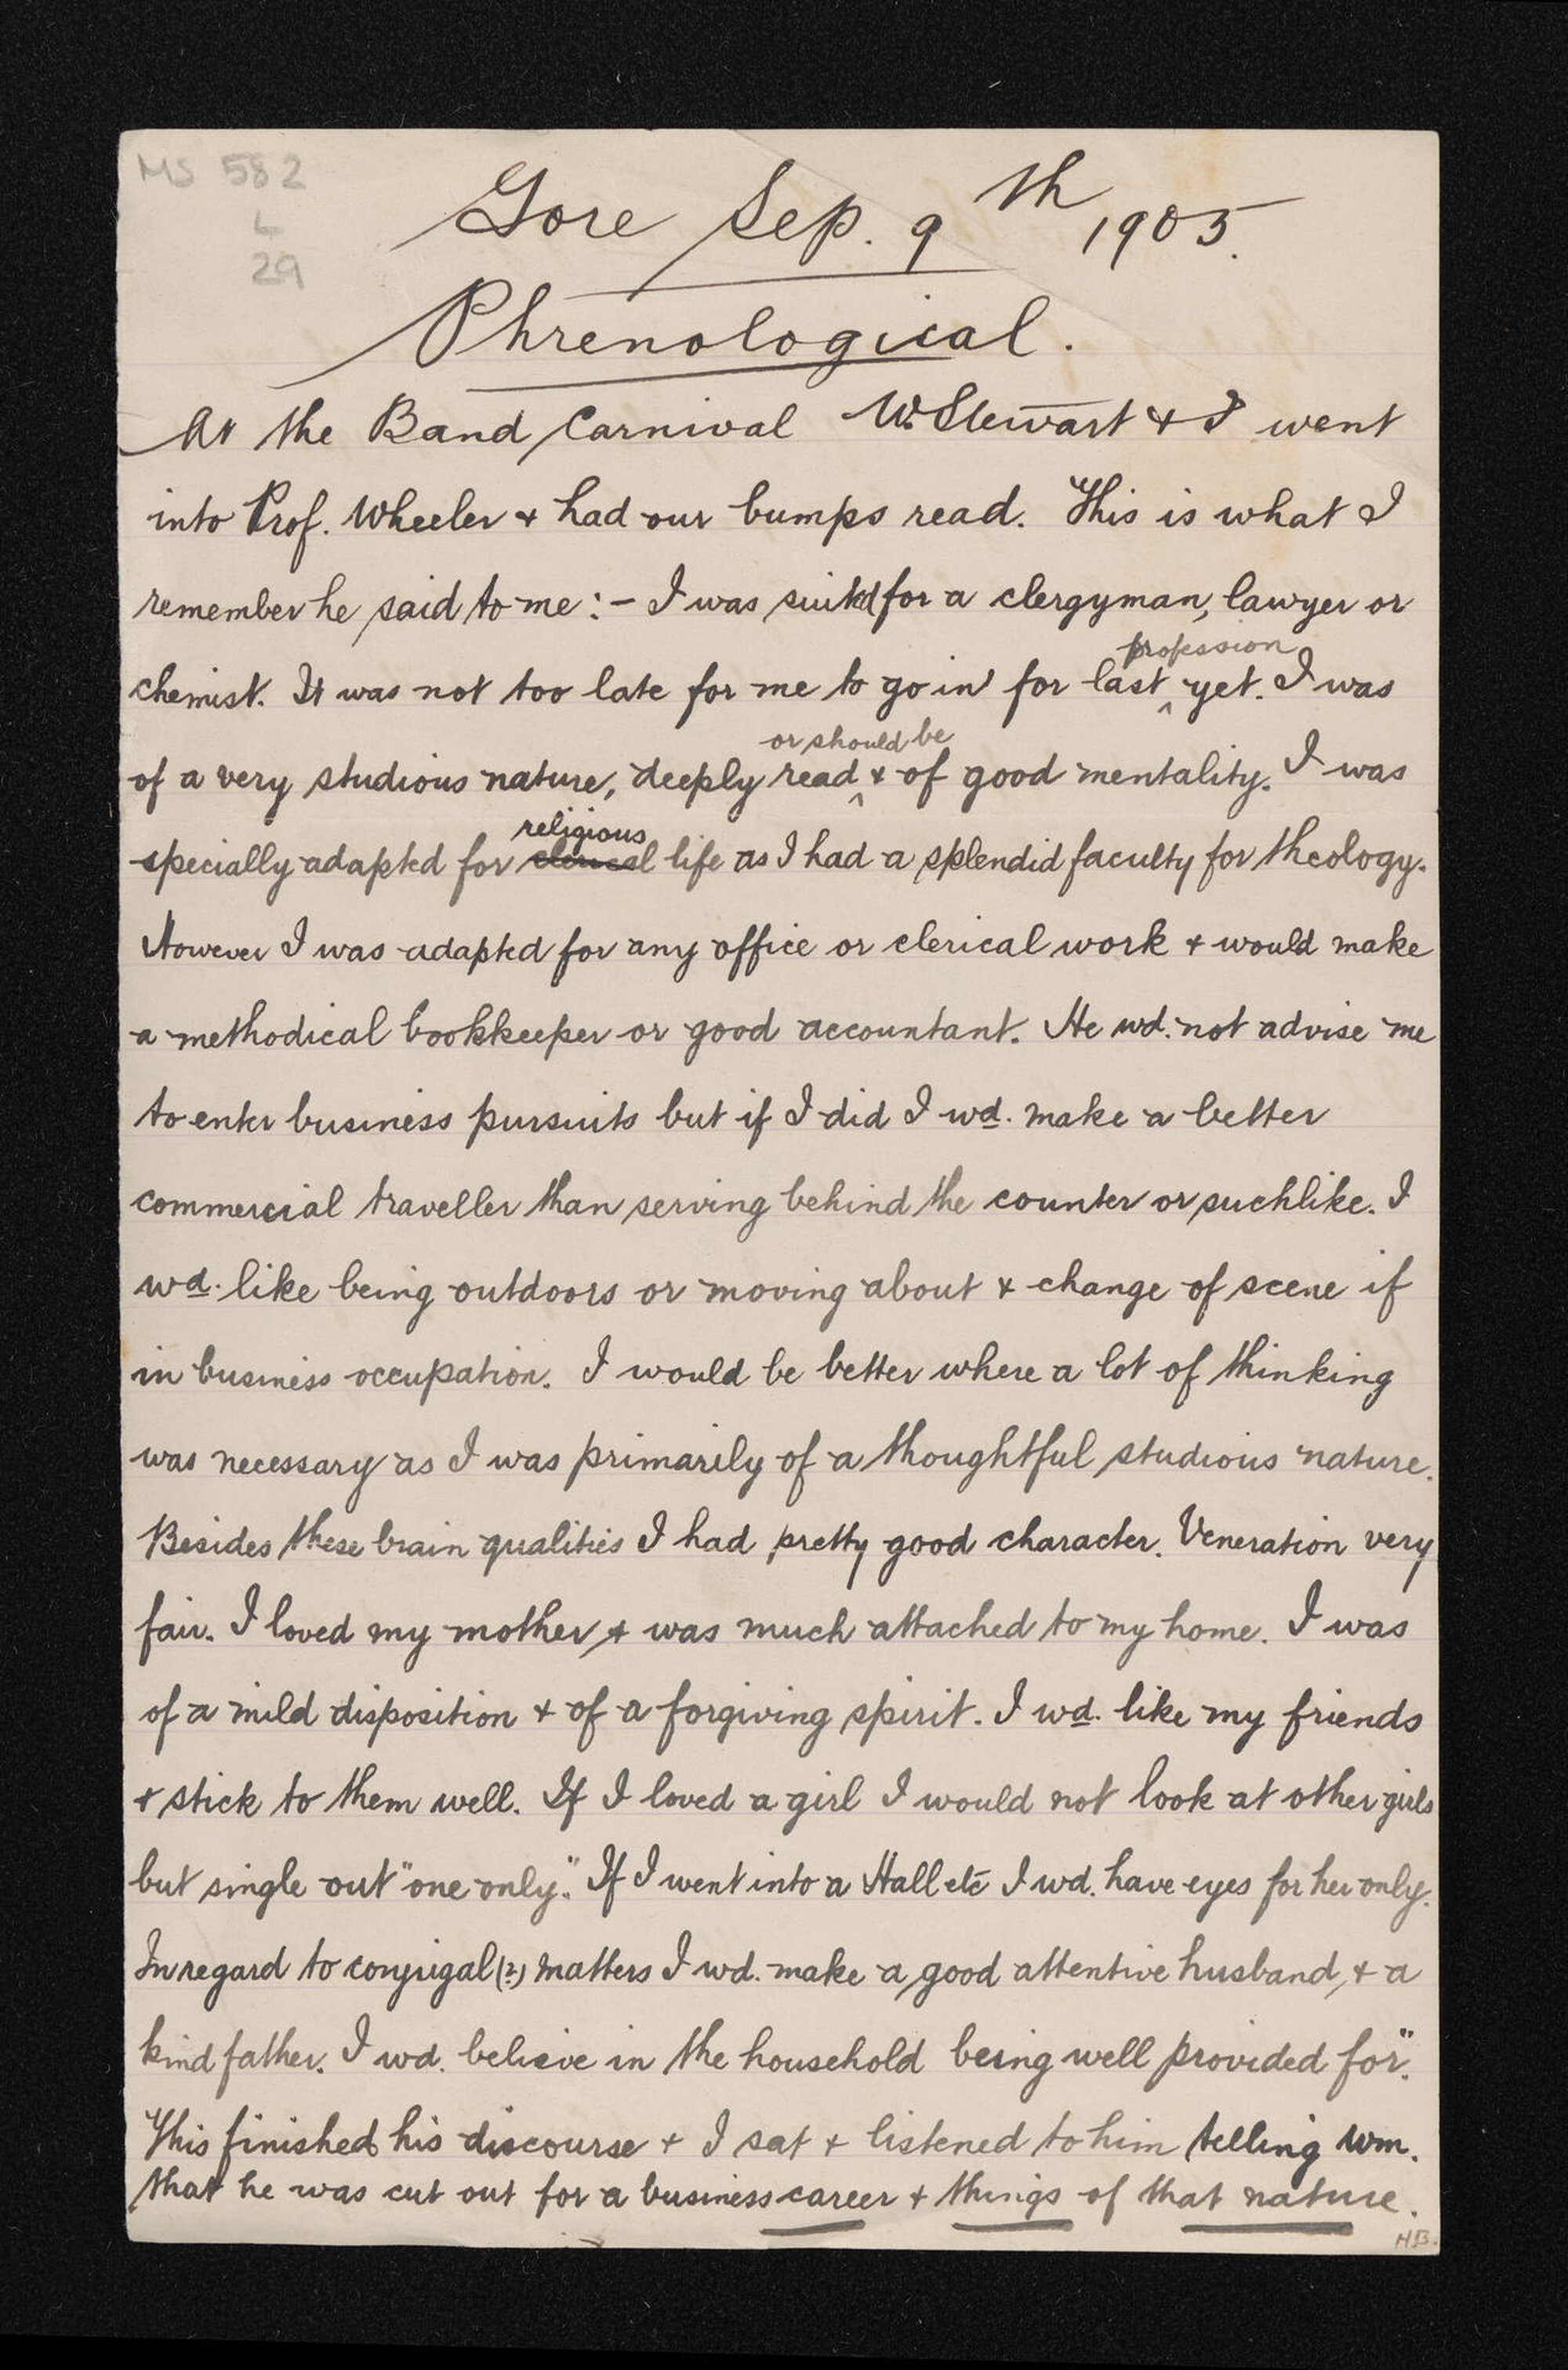 MS 582
L
29
Gore Sep. 9th 1905.
Phrenological.
At the Band Carnival W. Stewart & I went
into Prof. Wheeler & had our bumps read. This is what I
remember he said to me :- I was suited for a clergyman, lawyer or
profession
chemist. It was not too late for me to go in for last ‸ yet. I was
or should be
of a very studious nature, deeply read ‸ & of good mentality. I was
religious
specially adapted for clerical life as I had a splendid faculty for theology.
However I was adapted for any office or clerical work & would make
a methodical bookkeeper or good accountant. He wd. not advise me
to enter business pursuits but if I did I wd. make a better
commercial traveller than serving behind the counter or suchlike. I
wd. like being outdoors or moving about & change of scene if
in business occupation. I would be better where a lot of thinking
was necessary as I was primarily of a thoughtful studious nature.
Besides these brain qualities I had pretty good character. Veneration very
fair. I loved my mother, & was much attached to my home. I was
of a mild disposition & of a forgiving spirit. I wd. like my friends
& stick to them well. If I loved a girl I would not look at other girls
but single out "one only." If I went into a Hall etc I wd. have eyes for her only.
In regard to conjigal (?) matters I wd. make a good attentive husband, & a
kind father. I wd. believe in the household being well provided for".
This finished his discourse & I sat & listened to him telling Wm.
that he was cut out for a business career & things of that nature.
HB.